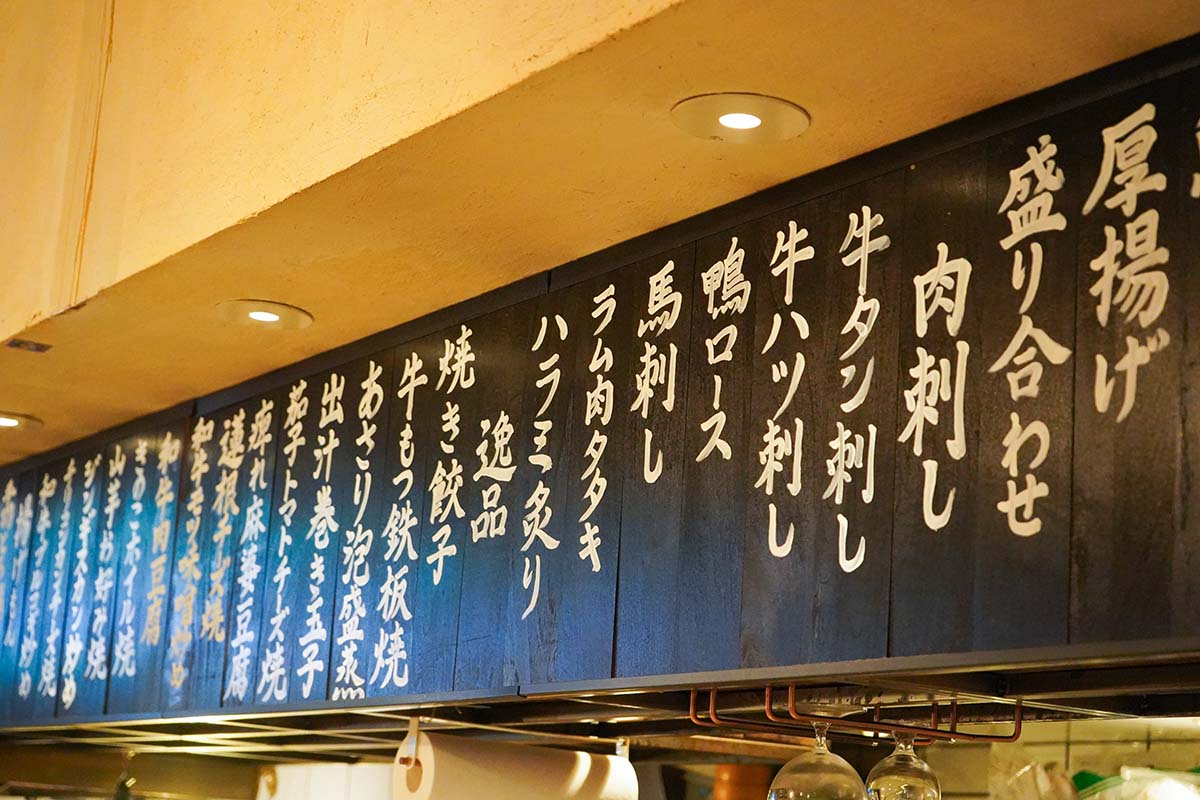 厚揚げ
盛り合わせ
肉刺し
牛タン刺し
牛ハツ刺し
鴨ロース
馬刺し
ラム肉タタキ
ハラミ炙り
逸品
焼き餃子
牛もつ鉄板焼
あさり泡盛蒸
出汁巻き玉子
茄子トマトチーズ焼
痺れ麻婆豆腐
蓮根チーズ焼
和牛モツ味噌炒め
和牛肉豆腐
きのこホイル焼
山芋お好み焼
ジンギスカン炒め